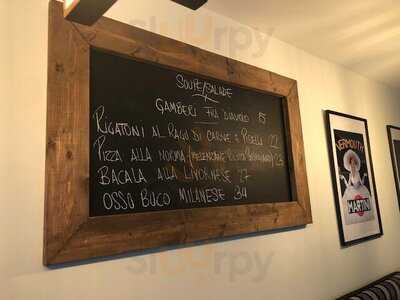 SOUPE/SALADE
GAMBERI FRA DIAVOLO 15
RIGATONI AL RAGU DI CARNE E PISELLI 22
PIZZA ALLA NORMA (MELENZANE 23
BACALA ALLA LIVORNESE 27
OSSO BUCO MILANESE 34
VERMOUTH
MARTINI